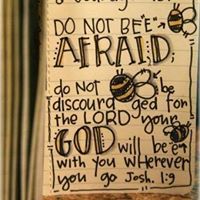 DO NOT BEE
AFRAID;
do NOT be
discouraged for
the LORD your
GOD will bee
with you wherever
you go Josh. 1:9